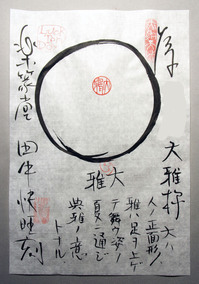 大雅
大ハ
人ノ正面形
雅ハ足ヲ上ゲ
テ舞ウ姿ノ
夏ニ通ジ
典雅ノ意
トナル
大雅
楽篆堂 田中快旺刻